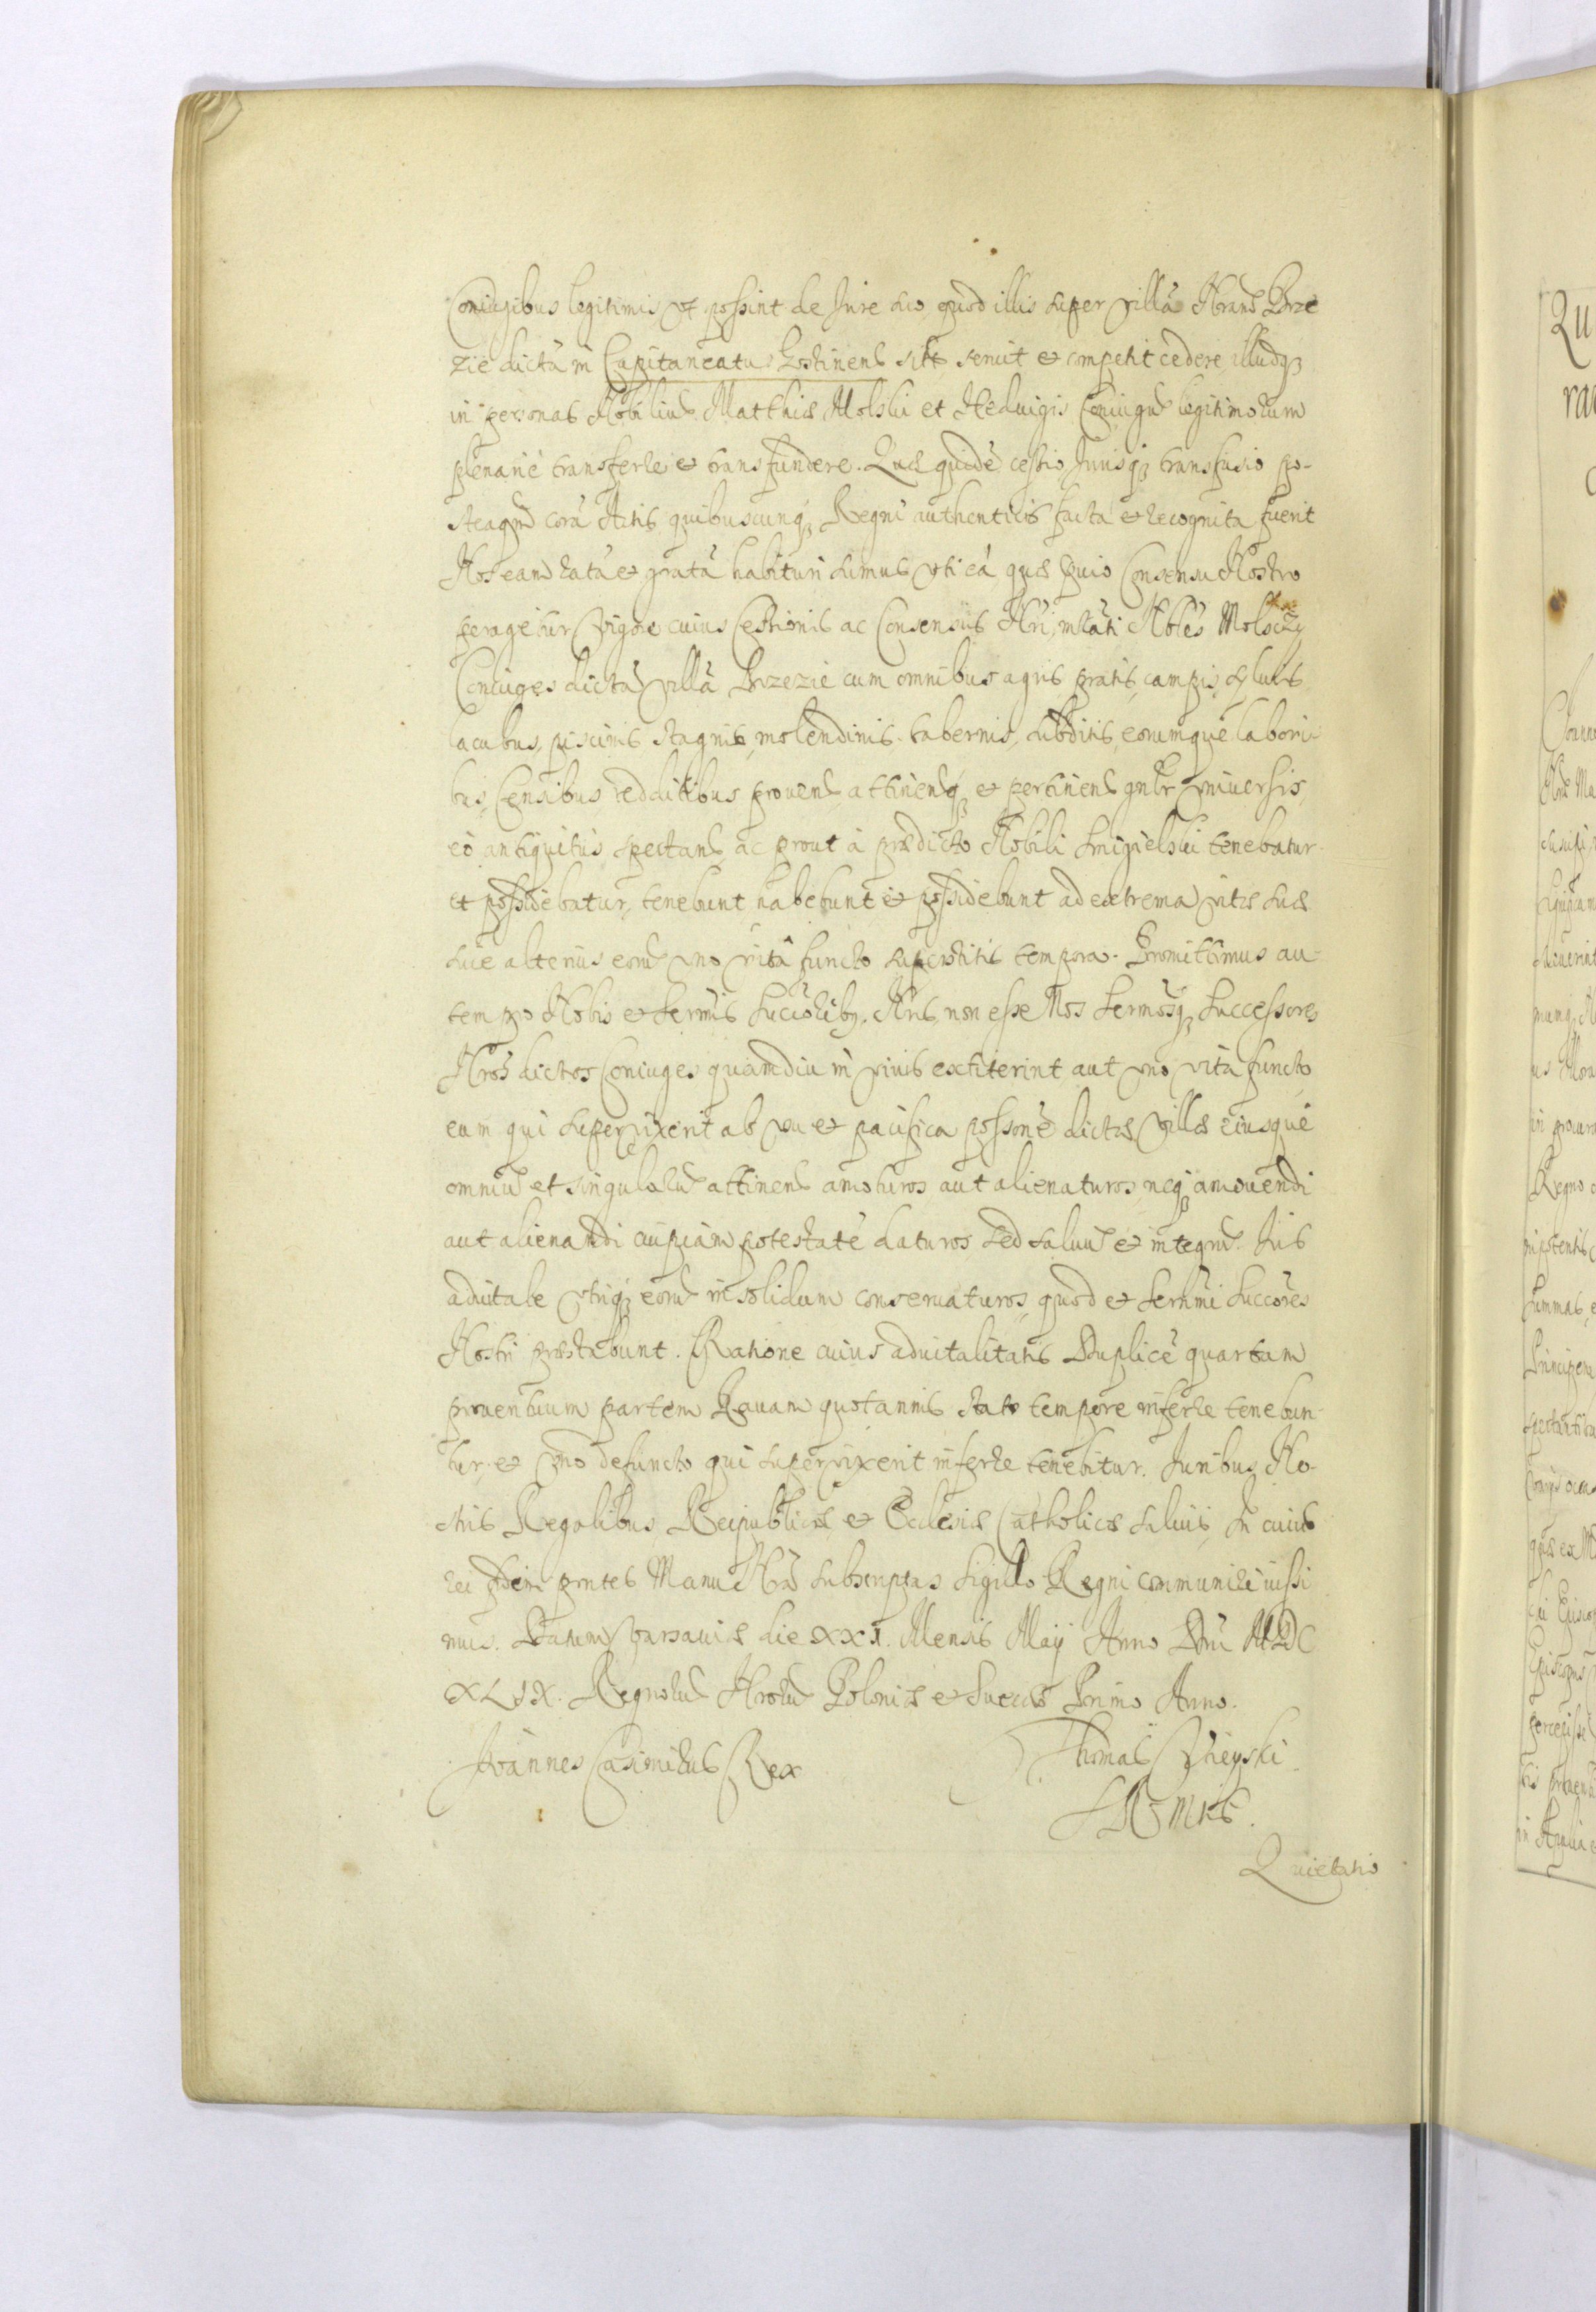 Coniugibus legitimis, vt possint de Jure suo, quod illis super villã Nram Brze
zie dictã in Capitaneatu Gostinens sitã seruit et competit cedere, illudq;
in personas Nobilium Matthiæ Molski et Heduigis Coniugũ legitimorum
plenariè transferre et transfundere. Quæ quidẽ cessio Jurisq; transfusio po-
steaqũ corã Actis quibuscunq; Regni authenticis facta et recognita fuerit
Nos eam ratã et gratã habituri sumus, vti eã quæ pũio Consensu Nostro
peragetur. Vigore cuius Cessionis ac Consensus Nri, mẽati Nbles Molsczy
Coniuges dictã villã Brzezie cum omnibus agris, pratis, campis, syluis
lacubus, piscinis, stagnis, molendinis, tabernis, subditis, eorumque labori-
bus, Censibus, redditibus, prouen, attinenq; et pertinen gnlr vniuersis,
eò antiquitùs spectan, ac prout à prædicto Nobili Smigielski tenebatur
et possidebatur, tenebunt habebunt et possidebunt ad extrema vitæ suæ
siue alterius eorũ vno vitâ functo superstitis tempora. Promittimus au-
tem pro Nobis et Sermis Succrib9. Nris, non esse Nos Sermosq; Successores
Nros dictos Coniuges quamdiu in viuis extiterint, aut vno vitâ functo,
eum qui superuixerit ab vsu et pacifica possone dictæ villæ eiusque
omniũ et singulorũ attinen amoturos, aut alienaturos, neq; amouendi
aut alienandi cuipiam potestatẽ daturos, sed saluũ et integrũ Jus
aduitale vtriq; eorũ in solidum conseruaturos, quod et Sermi Succores
Nostri præstabunt. Ratione cuius aduitalitatis Duplicẽ quartam
prouentuum partem Rauam quotannis stato tempore inferre tenebun-
tur, et vno defuncto qui superuixerit inferre tenebitur. Juribus No-
stris Regalibus, Reipublicæ, et Ecclesiæ Catholicæ saluis, In cuius
rei fidem pntes Manu Nra subscriptas Sigillo Regni communiri iussi-
mus. Datum Varsauiæ die XXI. Mensis Maij Anno Dni MDC
XLIX. Regnorũ Nrorũ Poloniæ et Sueciæ Primo Anno.
Joannes Casimirus Rex
Thomas Vieyski
SRMtis.
Quietatio